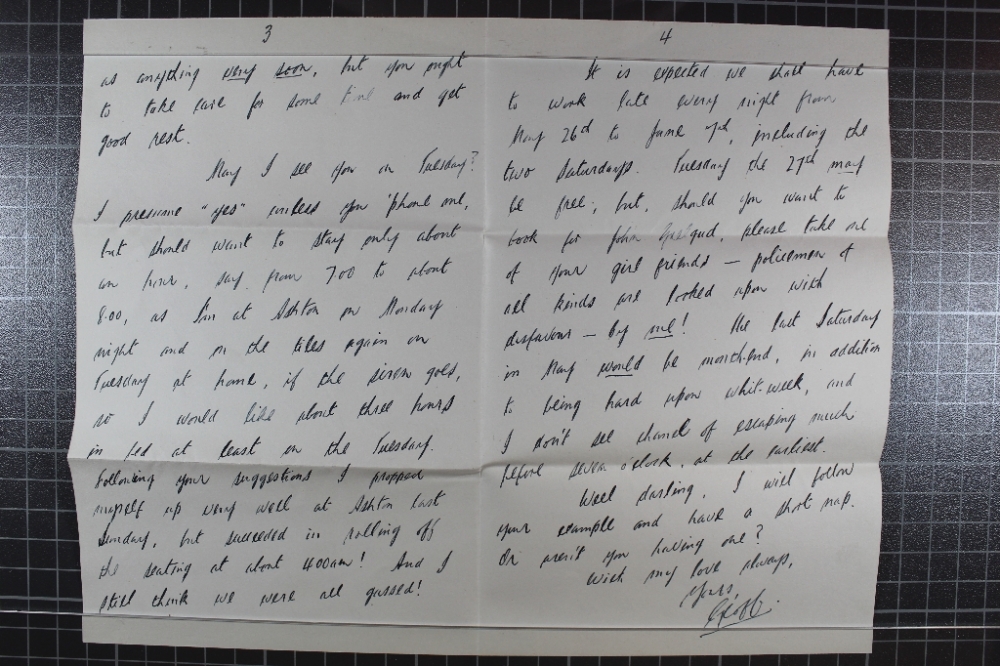 3
as anything very soon, but you ought
to take care for some time and get
good rest.
May I see you on Tuesday?
I presume "yes" unless you 'phone me,
but should want to stay only about
an hour, say from 7.00 to about
8.00, as I'm at Ashton on Monday
night and on the tiles again on
Tuesday at home, if the siren goes,
so I would like about three hours
in bed at least on the Tuesday.
Following your suggestions I propped
myself up very well at Ashton last
Sunday, but succeeded in rolling off
the seating at about 4.00am! And I
still think we were all gassed!
4
It is expected we shall have
to work late every night from
May 26th to June 7th, including the
two Saturdays. Tuesday the 27th may
be free, but, should you want to
book for John Gielgud, please take one
of your girl friends — policemen of
all kinds are looked upon with
disfavour — by me! The last Saturday
in May would be month-end, in addition
to being hard upon whit-week, and
I don't see chance of escaping much
before seven o'clock, at the earliest.
Well darling, I will follow
your example and have a short nap.
Or aren't you having one?
With my love always,
Yours,